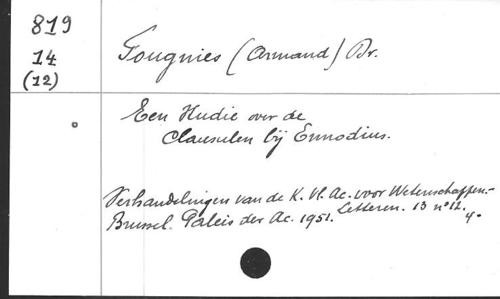 819
14
(12)
Fougnies (Armand) Dr.
Een studie over de
Clausulen bij Ennodius.
Verhandelingen van de K. Vl. Ac. voor Wetenschappen.-
Letteren. 13 nº 12.
Brussel. Paleis der Ac. 1951. 4º